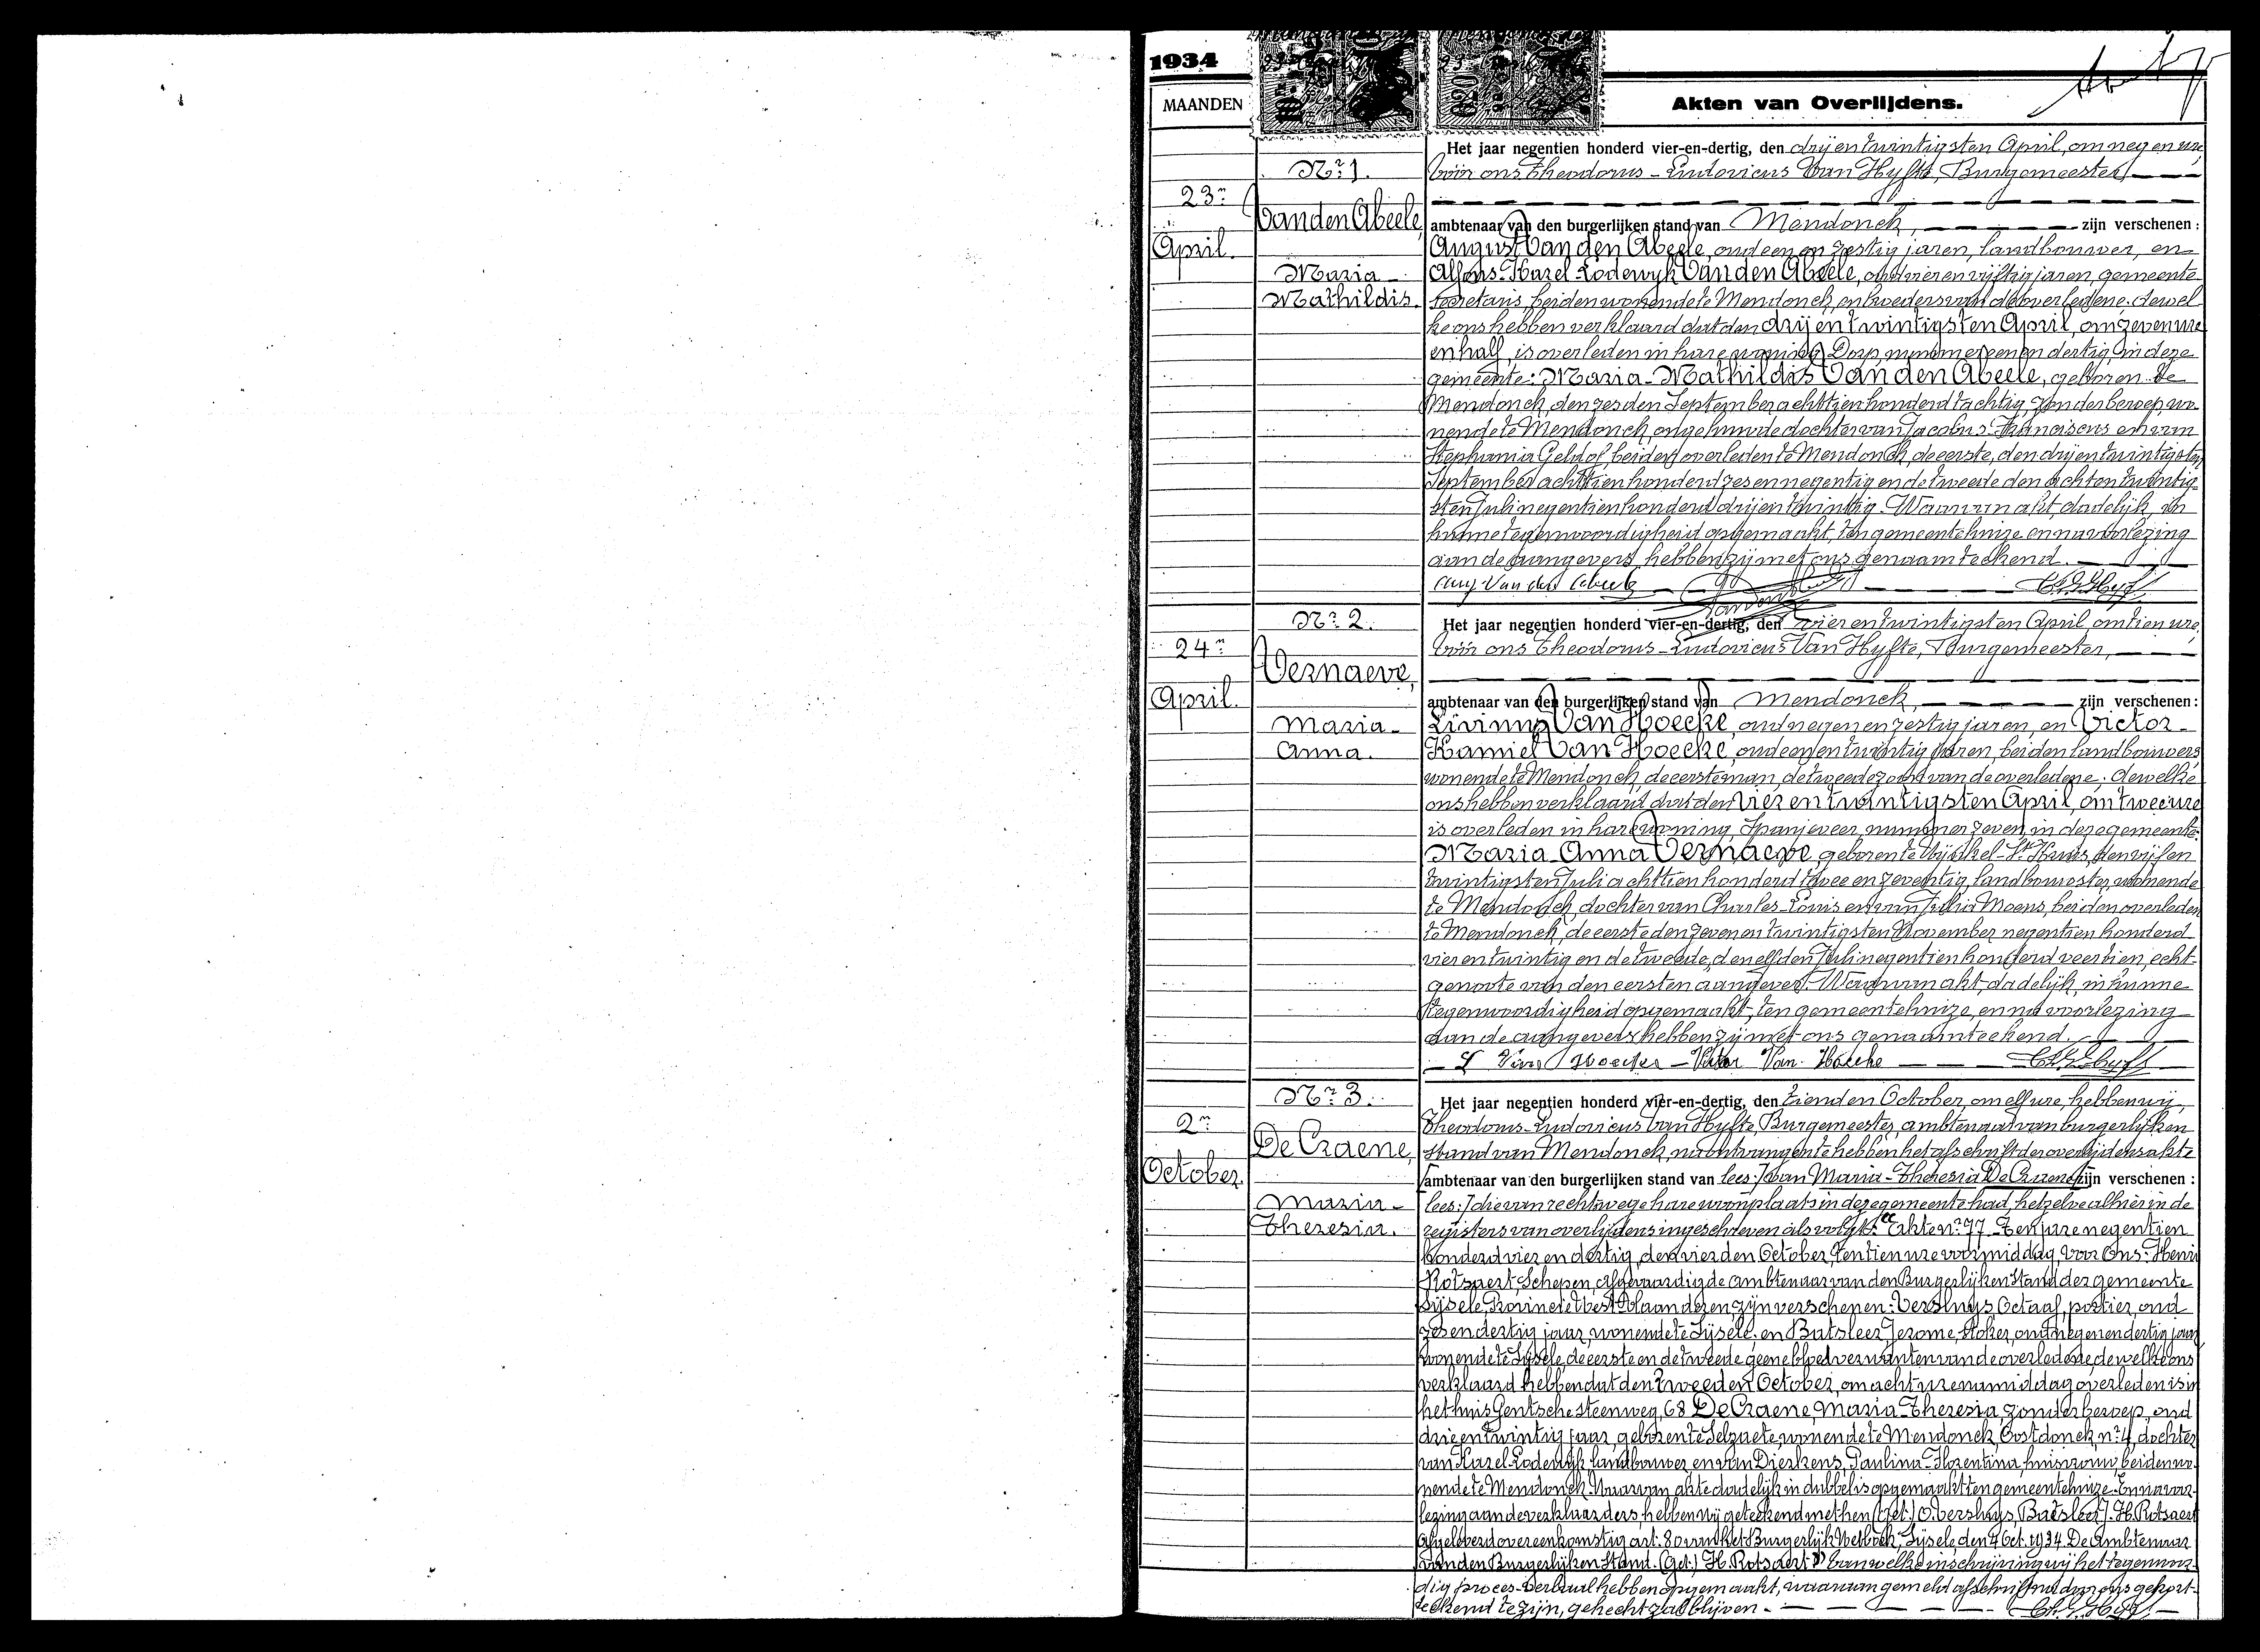 1934
MAANDEN
Akten van Overlijdens.
Nr 1.
23n
April.
Van den Abeele,
Maria-
Mathildis.
Het jaar negentien honderd vier-en-dertig, den drijentwintigsten April, om negen ure,
vóór ons Theodorus-Ludovicus Van Hyfte, Burgemeester,
ambtenaar van den burgerlijken stand van Mendonck, zijn verschenen:
August Van den Abeele, oud een en zestig jaren, landbouwer, en
Alfons-Karel-Lodewyk Van den Abeele, oud vier en vijftig jaren, gemeente-
secretaris, beiden wonende te Mendonck, en broeders van de overledene; dewel-
ke ons hebben verklaard dat den drij en twintigsten April, om zeven ure
en half, is overleden in hare woning Dorp, nummer een en dertig, in deze
gemeente: Maria-Mathildis Van den Abeele, geboren te
Mendonck, den zesden September achttien honderd tachtig, zonder beroep, wo-
nende te Mendonck, ongehuwde dochter van Jacobus-Franciscus en van
Stephania Gelaof, beiden overleden te Mendonck, de eerste, den drijentwintigsten
September achttien honderd zes en negentig en de tweede den achtentwintig-
sten Juli negentien honderd drij en twintig. Waarvan akt, dadelijk, in
hunne tegenwoordigheid opgemaakt, ten gemeentehuize en na voorlezing
aan de aangevers, hebben zij met ons genaamteekend.
Aug Van den Abeele
Nr 2.
24n
April.
Vernaeve,
Maria-
Anna.
Het jaar negentien honderd vier-en-dertig, den vier en twintigsten April, om tien ure,
vóór ons Theodorus-Ludovicus Van Hyfte, Burgemeester,
ambtenaar van den burgerlijken stand van Mendonck, zijn verschenen:
Livinus Van Hoecke, oud negen en zestig jaren, en Victor-
Kamiel Van Hoecke, oud een en twintig jaren, beiden landbouwers,
wonende te Mendonck, de eerste man, de tweede zoon van de overledene; dewelke
ons hebben verklaard dat den vier en twintigsten April, om twee ure
is overleden in hare woning, Spanjeveer, nummer zeven, in deze gemeente:
Maria-Anna Vernaeve, geboren te Wynkel-St Kruis, den vijf en
twintigsten Juli achttien honderd twee en zeventig, landbouwster, wonende
te Mendonck, dochter van Charles-Louis en van Julia Moens, beiden overleden
te Mendonck, de eerste den zeven en twintigsten November negentien honderd
vier en twintig en de tweede, den elfden Juli negentien honderd veertien, echt-
genoote van den eersten aangever. Waarvan akt, dadelijk, in hunne
tegenwoordigheid opgemaakt, ten gemeentehuize, en na voorlezing
aan de aangevers hebben zij met ons genaamteekend.
L Van Hoecke - Victor Van Hoecke
Nr 3.
2n
October.
De Craene,
Maria-
Theresia.
Het jaar negentien honderd vier-en-dertig, den tienden October, om elf ure, hebben wij,
Theodorus-Ludovicus Van Hyfte, Burgemeester, ambtenaar van burgerlijken
stand van Mendonck, na ontvangen te hebben het afschrift der overlijdensakte
ambtenaar van den burgerlijken stand van lees:/ van Maria-Theresia De Craene, zijn verschenen:
lees:/ die van rechtswege hare woonplaats in deze gemeente had, hetzelve alhier in de
registers van overlijdens ingeschreven als volgt: "Akte nr 77. Ten jare negentien
honderd vier en dertig, den vierden October, ten tien ure voormiddag, voor Ons: Henri
Rotsaert, Schepen, afgevaardigde ambtenaar van den Burgerlijken Stand der gemeente
Sijsele, Provincie West-Vlaanderen, zijn verschenen: Versluys, Octaaf, portier, oud
zes en dertig jaar, wonende te Sijsele, en Batsleer, Jerome, stoker, oud negen en dertig jaar
wonende te Sijsele, de eerste en de tweede geene bloedverwanten van de overledene, dewelke ons
verklaard hebben dat den tweeden October, om acht ure namiddag overleden is in
het huis Gentsche steenweg, 68 De Craene, Maria-Theresia, zonder beroep, oud
drie en twintig jaar, geboren te Selzaete, wonende te Mendonck, Oostdonck, nr 4, dochter
van Karel-Lodewijk, landbouwer, en van Dierkens, Paulina-Florentina, huisvrouw, beiden wo-
nende te Mendonck. Waarvan akte dadelijk in dubbel is opgemaakt ten gemeentehuize. En na voor-
lezing aan de verklaarders, hebben wij geteekend met hen (Get.) O. Versluys, Batsleer J. H. Rotsaert
Afgeleverd overeenkomstig art. 80 van het Burgerlijk Wetboek, Sijsele, den 4 Oct. 1934. De Ambtenaar
van den Burgerlijken Stand. (Get.) H. Rotsaert." Van welke inschrijving wij het tegenwoor-
dig proces-verbaal hebben opgemaakt, waaraan gemeld afschrift na door ons gekort-
teekend te zijn, gehecht zal blijven.